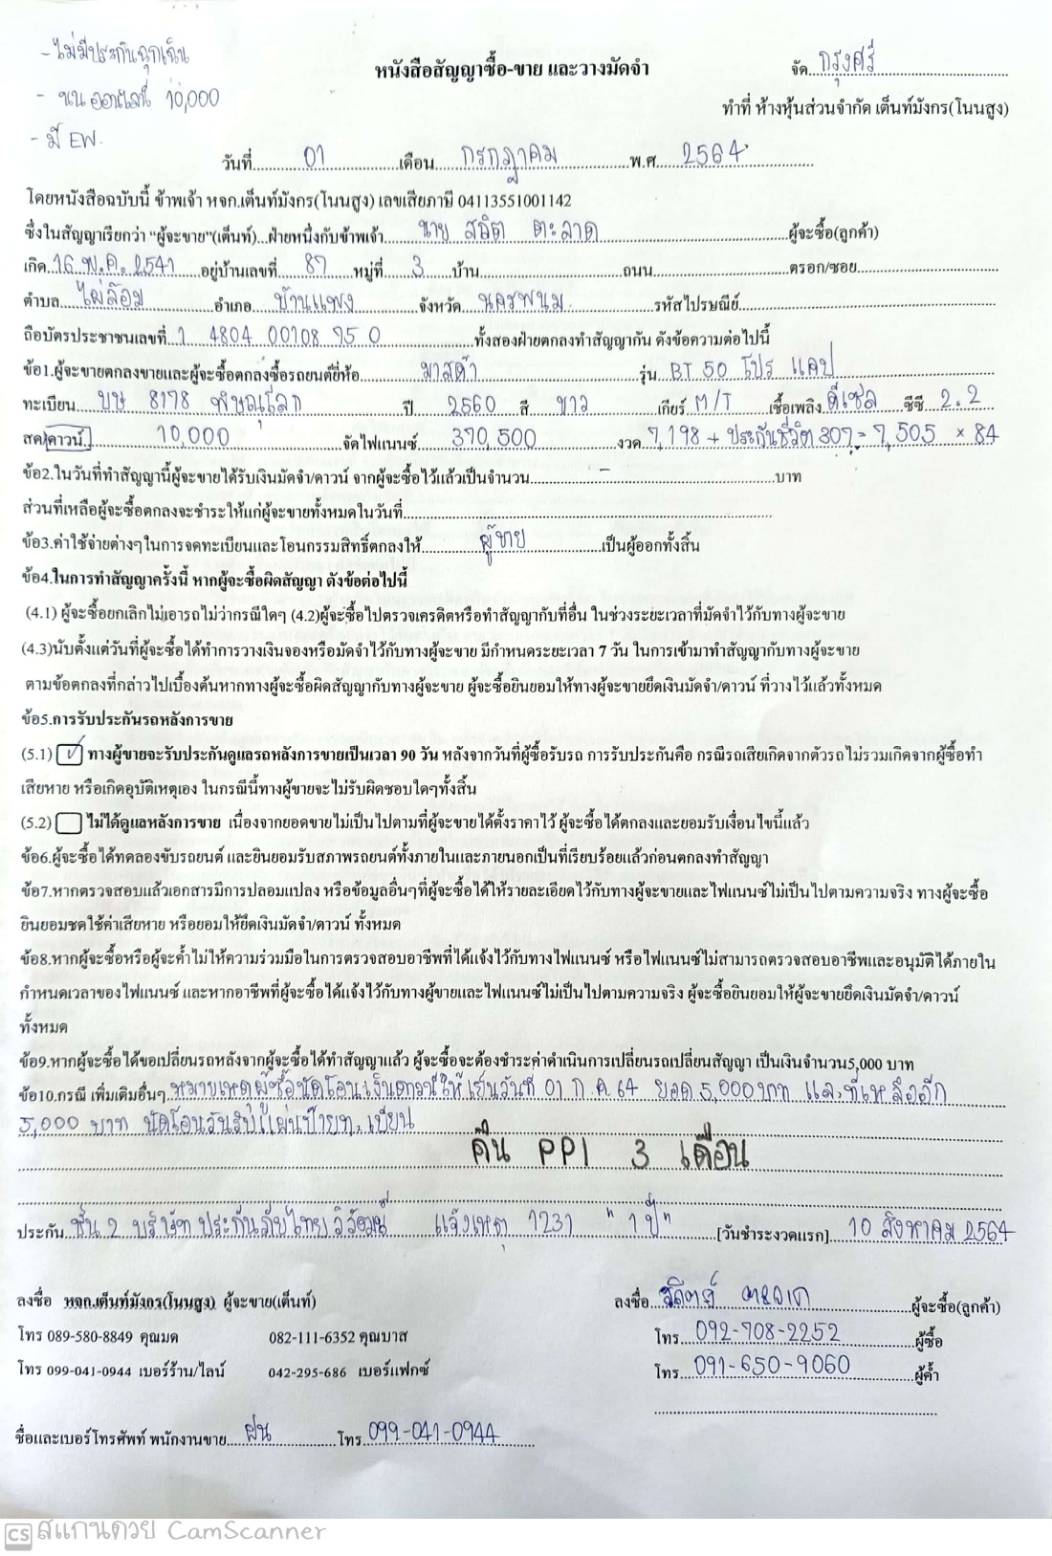 - ไม่มีประกันฉุกเฉิน
- แนน ออกเงินนี้ 10,000
- มี EW.
หนังสือสัญญาซื้อ-ขาย และวางมัดจำ
จัด...กรุงศรี
ทำที่ ห้างหุ้นส่วนจำกัด เต็นท์มังกร(โนนสูง)
วันที่ 01 เดือน กรกฎาคม พ.ศ 2564
โดยหนังสือฉบับนี้ ข้าพเจ้า หจก.เต็นท์มังกร(โนนสูง) เลขเสียภาษี 04113551001142
ซึ่งในสัญญาเรียกว่า "ผู้จะขาย"(เต็นท์)...ฝ่ายหนึ่งกับข้าพเจ้า นาย สถิต ตะลาด ผู้จะซื้อ(ลูกค้า)
เกิด 16 พ.ค. 2541 อยู่บ้านเลขที่ 87 หมู่ที่ 3 บ้าน ถนน ตรอก/ซอย
ตำบล ไผ่ล้อม อำเภอ บ้านแพง จังหวัด นครพนม รหัสไปรษณีย์
ถือบัตรประชาชนเลขที่ 1 4804 00108 95 0 ทั้งสองฝ่ายตกลงทำสัญญากัน ดังข้อความต่อไปนี้
ข้อ1.ผู้จะขายตกลงขายและผู้จะซื้อตกลงซื้อรถยนต์ยี่ห้อ มาสด้า รุ่น BT 50 โปร แคป
ทะเบียน บษ 8178 พิษณุโลก ปี 2560 สี ขาว เกียร์ M/T เชื้อเพลิง ดีเซล ซีซี 2.2
สด/ดาวน์ 10,000 จัดไฟแนนซ์ 370,500 งวด 7,198 + ประกันชีวิต 307 = 7,505 × 84
ข้อ2.ในวันที่ทำสัญญานี้ผู้จะขายได้รับเงินมัดจำ/ดาวน์ จากผู้จะซื้อไว้แล้วเป็นจำนวน - บาท
ส่วนที่เหลือผู้จะซื้อตกลงจะชำระให้แก่ผู้จะขายทั้งหมดในวันที่
ข้อ3.ค่าใช้จ่ายต่างๆในการจดทะเบียนและโอนกรรมสิทธิ์ตกลงให้ ผู้ขาย เป็นผู้ออกทั้งสิ้น
ข้อ4.ในการทำสัญญาครั้งนี้ หากผู้จะซื้อผิดสัญญา ดังข้อต่อไปนี้
(4.1) ผู้จะซื้อยกเลิกไม่เอารถไม่ว่ากรณีใดๆ (4.2)ผู้จะซื้อไปตรวจเครดิตหรือทำสัญญากับที่อื่น ในช่วงระยะเวลาที่มัดจำไว้กับทางผู้จะขาย
(4.3)นับตั้งแต่วันที่ผู้จะซื้อได้ทำการวางเงินจองหรือมัดจำไว้กับทางผู้จะขาย มีกำหนดระยะเวลา 7 วัน ในการเข้ามาทำสัญญากับทางผู้จะขาย
ตามข้อตกลงที่กล่าวไปเบื้องต้นหากทางผู้จะซื้อผิดสัญญากับทางผู้จะขาย ผู้จะซื้อยินยอมให้ทางผู้จะขายยึดเงินมัดจำ/ดาวน์ ที่วางไว้แล้วทั้งหมด
ข้อ5.การรับประกันรถหลังการขาย
(5.1) ✓ ทางผู้ขายจะรับประกันดูแลรถหลังการขายเป็นเวลา 90 วัน หลังจากวันที่ผู้ซื้อรับรถ การรับประกันคือ กรณีรถเสียเกิดจากตัวรถ ไม่รวมเกิดจากผู้ซื้อทำ
เสียหาย หรือเกิดอุบัติเหตุเอง ในกรณีนี้ทางผู้ขายจะไม่รับผิดชอบใดๆทั้งสิ้น
(5.2) ไม่ได้ดูแลหลังการขาย เนื่องจากยอดขายไม่เป็นไปตามที่ผู้จะขายได้ตั้งราคาไว้ ผู้จะซื้อได้ตกลงและยอมรับเงื่อนไขนี้แล้ว
ข้อ6.ผู้จะซื้อได้ทดลองขับรถยนต์ และยินยอมรับสภาพรถยนต์ทั้งภายในและภายนอกเป็นที่เรียบร้อยแล้วก่อนตกลงทำสัญญา
ข้อ7.หากตรวจสอบแล้วเอกสารมีการปลอมแปลง หรือข้อมูลอื่นๆที่ผู้จะซื้อได้ให้รายละเอียดไว้กับทางผู้จะขายและไฟแนนซ์ไม่เป็นไปตามความจริง ทางผู้จะซื้อ
ยินยอมชดใช้ค่าเสียหาย หรือยอมให้ยึดเงินมัดจำ/ดาวน์ ทั้งหมด
ข้อ8.หากผู้จะซื้อหรือผู้จะค้ำไม่ให้ความร่วมมือในการตรวจสอบอาชีพที่ได้แจ้งไว้กับทางไฟแนนซ์ หรือไฟแนนซ์ไม่สามารถตรวจสอบอาชีพและอนุมัติได้ภายใน
กำหนดเวลาของไฟแนนซ์ และหากอาชีพที่ผู้จะซื้อได้แจ้งไว้กับทางผู้ขายและไฟแนนซ์ไม่เป็นไปตามความจริง ผู้จะซื้อยินยอมให้ผู้จะขายยึดเงินมัดจำ/ดาวน์
ทั้งหมด
ข้อ9.หากผู้จะซื้อได้ขอเปลี่ยนรถหลังจากผู้จะซื้อได้ทำสัญญาแล้ว ผู้จะซื้อจะต้องชำระค่าดำเนินการเปลี่ยนรถเปลี่ยนสัญญา เป็นเงินจำนวน5,000 บาท
ข้อ10.กรณี เพิ่มเติมอื่นๆ หมายเหตุผู้ซื้อนัดโอนเงินดาวน์ให้เย็นวันที่ 01 ก.ค 64 ยอด 5,000 บาท และที่เหลืออีก
5,000 บาท นัดโอนวันรับแผ่นป้ายทะเบียน
คืน PPI 3 เดือน
ประกัน ชั้น 2 บริษัท ประกันภัยไทยวิวัฒน์ แจ้งเหตุ 1231 "1 ปี" [วันชำระงวดแรก] 10 สิงหาคม 2564
ลงชื่อ หจก.เต็นท์มังกร(โนนสูง) ผู้จะขาย(เต็นท์)
ลงชื่อ ผู้จะซื้อ(ลูกค้า)
โทร 089-580-8849 คุณมด 082-111-6352 คุณบาส
โทร 092-708-2252 ผู้ซื้อ
โทร 099-041-0944 เบอร์ร้าน/ไลน์ 042-295-686 เบอร์แฟกซ์
โทร 091-650-9060 ผู้ค้ำ
ชื่อและเบอร์โทรศัพท์ พนักงานขาย ฝน โทร 099-041-0944
CS สแกนด้วย CamScanner